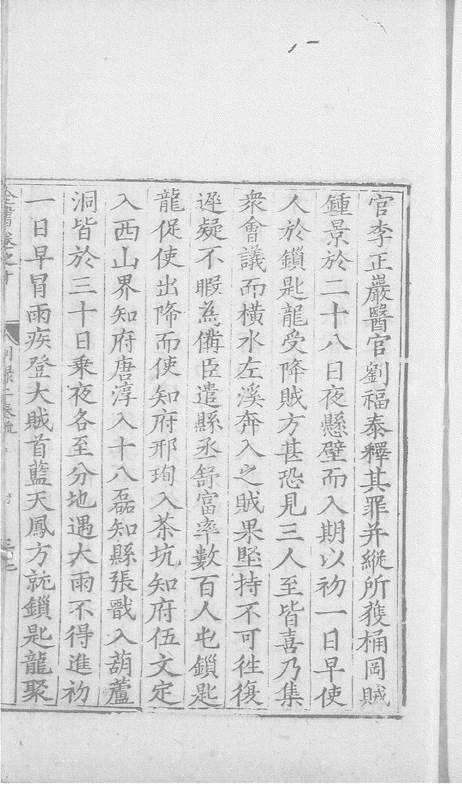 官李正巖醫官劉福泰釋其罪并縱所獲桶岡賊
鍾景於二十八日夜懸壁而入期以初一日早使
人於鎖匙龍受降賊方甚恐見三人至皆喜乃集
衆會議而橫水左溪奔入之賊果堅持不可徃復
遲疑不暇爲備臣遣縣丞舒富率數百人屯鎖匙
龍促使出降而使知府邢珣入茶坑知府伍文定
入西山界知府唐淳入十八磊知縣張戩入葫蘆
洞皆於三十日乗夜各至分地遇大雨不得進初
一日早冒雨疾登大賊首藍天鳳方就鎖匙龍聚
全書卷之十